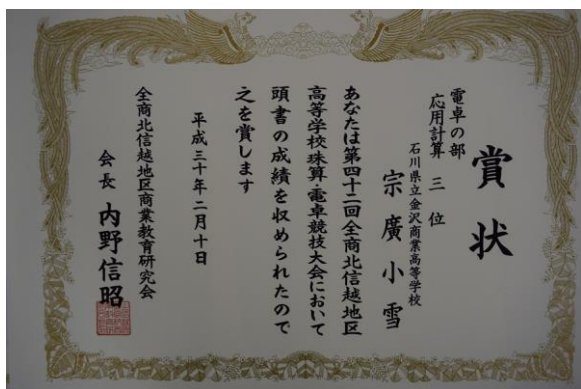 賞状
電卓の部
応用計算 三位
石川県立金沢商業高等学校
宗廣小雪
あなたは第四十二回全商北信越地区
高等学校珠算・電卓競技大会において
頭書の成績を収められたので
之を賞します
平成三十年二月十日
全商北信越地区商業教育研究会
会長 内野信昭